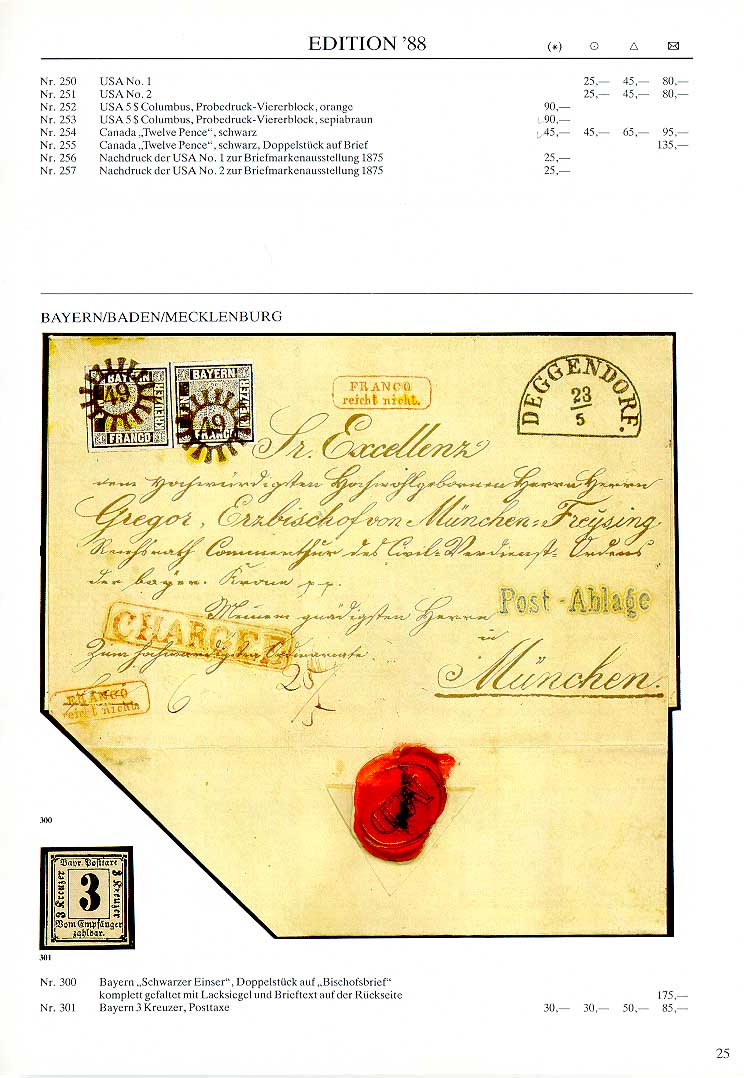 EDITION '88 (*) ⊙ △ ✉
Nr. 250 USA No. 1 25,— 45,— 80,—
Nr. 251 USA No. 2 25,— 45,— 80,—
Nr. 252 USA 5 $ Columbus, Probedruck-Viererblock, orange 90,—
Nr. 253 USA 5 $ Columbus, Probedruck-Viererblock, sepiabraun 90,—
Nr. 254 Canada „Twelve Pence“, schwarz 45,— 45,— 65,— 95,—
Nr. 255 Canada „Twelve Pence“, schwarz, Doppelstück auf Brief 135,—
Nr. 256 Nachdruck der USA No. 1 zur Briefmarkenausstellung 1875 25,—
Nr. 257 Nachdruck der USA No. 2 zur Briefmarkenausstellung 1875 25,—
BAYERN/BADEN/MECKLENBURG
BAYERN KREUZER FRANCO 49
BAYERN KREUZER FRANCO 49
FRANCO
reicht nicht.
DEGGENDORF.
23
5
Sr. Excellenz
dem Hochwürdigsten Hochwohlgebornen Herrn Herrn
Gregor, Erzbischof von München-Freysing,
Reichsrath Commenthur des Civil-Verdienst-Ordens
der bayer. Krone p.p.
Meinem gnädigsten Herrn
Post-Ablage
CHARGÉE
in
Zum hochwürdigsten Ordinariate.
München.
FRANCO
reicht nicht.
6
25/5
300
Bayr. Posttaxe
3 Kreuzer
3
3 Kreuzer
Vom Empfänger
zahlbar.
301
Nr. 300 Bayern „Schwarzer Einser“, Doppelstück auf „Bischofsbrief“
komplett gefaltet mit Lacksiegel und Brieftext auf der Rückseite 175,—
Nr. 301 Bayern 3 Kreuzer, Posttaxe 30,— 30,— 50,— 85,—
25